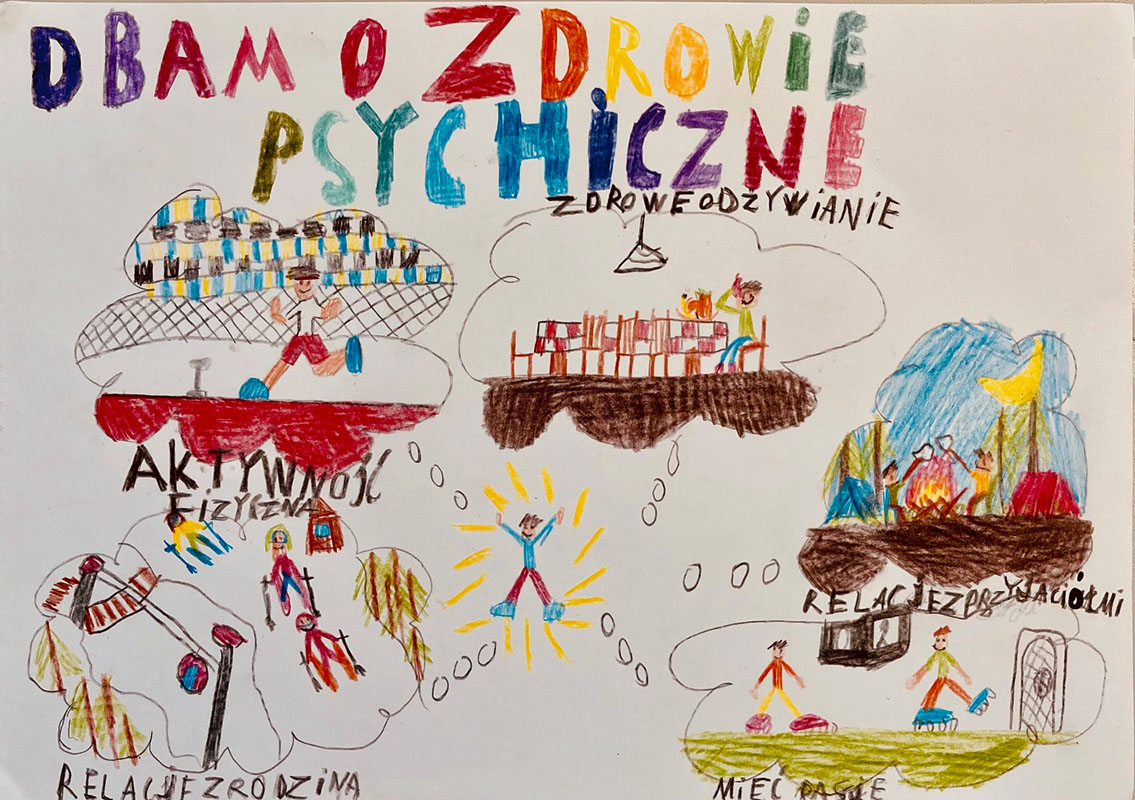 DBAM O ZDROWiE
PSYCHiCZNE
ZDROWE ODŻYWiANiE
AKTYWNOŚĆ
FiZYCZNA
RELACJE Z PRZYJACiÓŁMi
RELACJE Z RODZiNĄ
MiEĆ PASJE